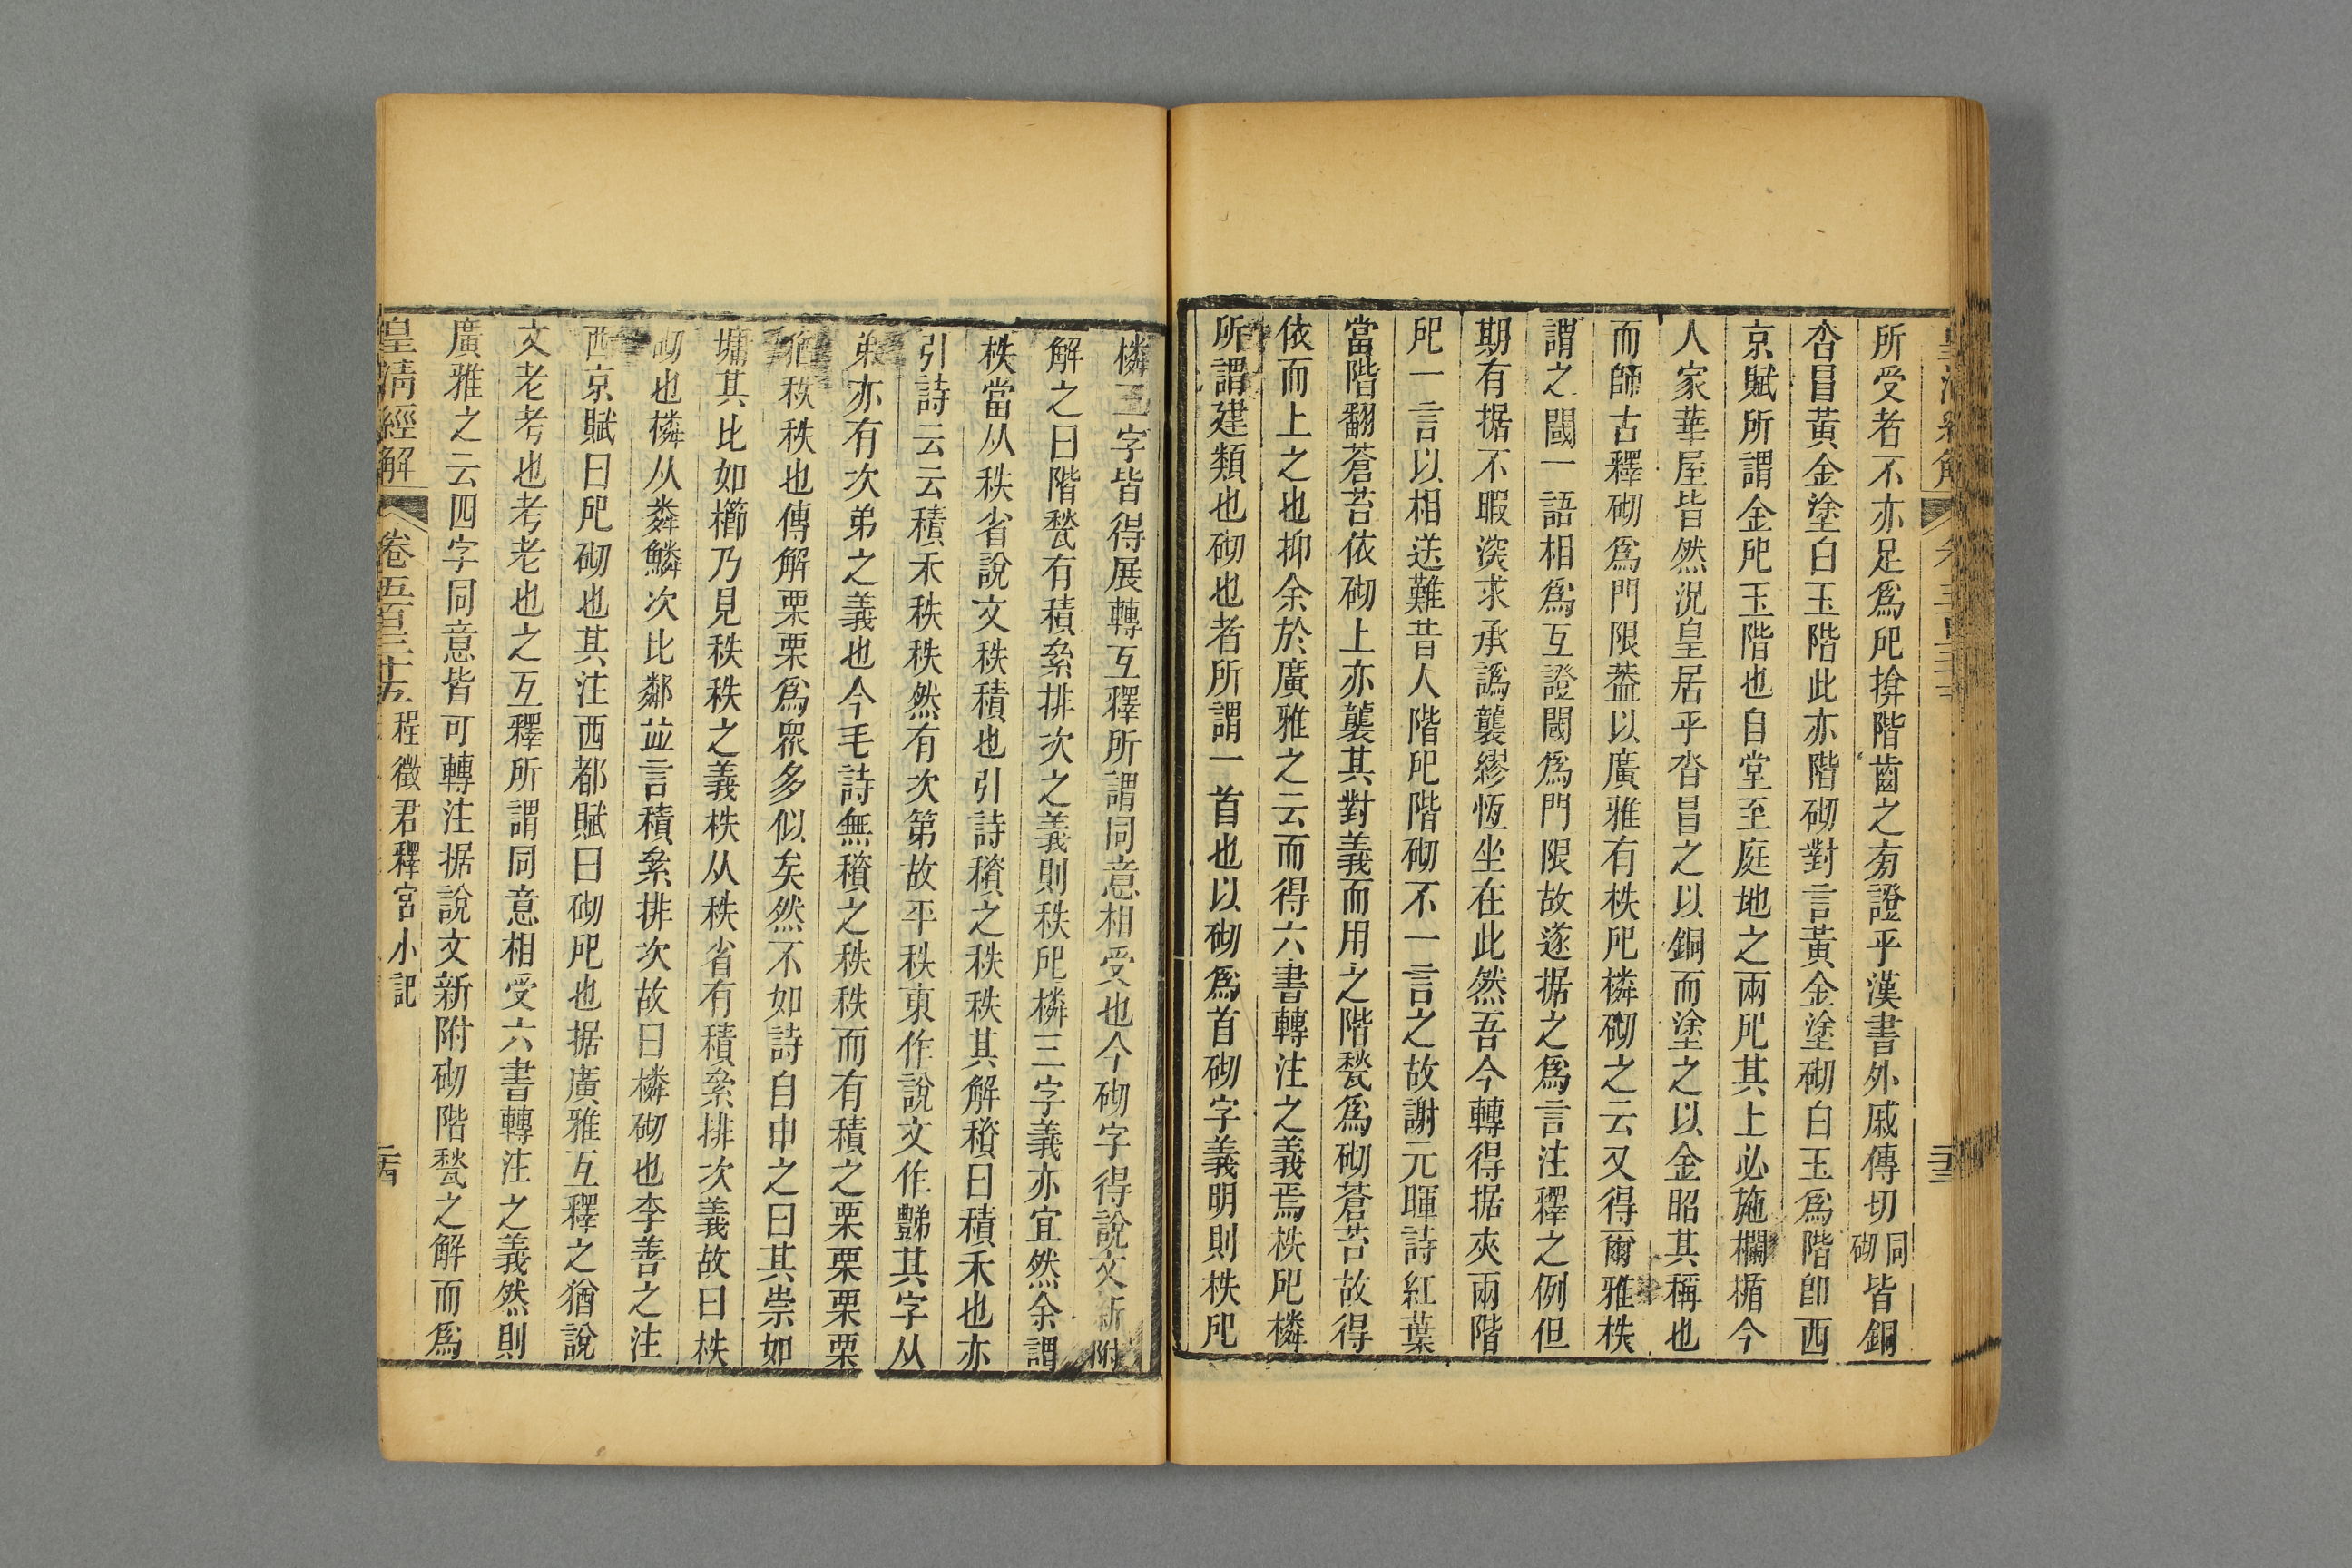 所受者不亦足爲戺揜階齒之㫄證乎漢書外戚傳切同砌皆銅
沓冒黃金塗白玉階此亦階砌對言黃金塗砌白玉爲階卽西
京賦所謂金戺玉階也自堂至庭地之兩戺其上必施欄楯今
人家華屋皆然況皇居乎沓冒之以銅而塗之以金昭其稱也
而師古釋砌爲門限葢以廣雅有柣戺橉砌之云又得爾雅柣
謂之閾一語相爲互證閾爲門限故遂据之爲言注釋之例但
期有据不暇深求承譌襲繆恆坐在此然吾今轉得据夾兩階
戺一言以相送難昔人階戺階砌不一言之故謝元暉詩紅葉
當階翻蒼苔依砌上亦襲其對義而用之階甃爲砌蒼苔故得
依而上之也抑余於廣雅之云而得六書轉注之義焉柣戺橉
所謂建類也砌也者所謂一首也以砌爲首砌字義明則柣戺
橉三字皆得展轉互釋所謂同意相受也今砌字得說文新附
解之曰階甃有積絫排次之義則秩戺橉三字義亦宜然余謂
柣當从秩省說文秩積也引詩䅣之秩秩其解䅣曰積禾也亦
引詩云云積禾秩秩然有次第故平秩東作說文作豑其字从
弟亦有次弟之義也今毛詩無䅣之秩秩而有積之栗栗栗
猶秩秩也傳解栗栗爲眾多似矣然不如詩自申之曰其崇如
墉其比如櫛乃見秩秩之義柣从秩省有積絫排次義故曰柣
砌也橉从粦鱗次比鄰竝言積絫排次故曰橉砌也李善之注
西京賦曰戺砌也其注西都賦曰砌戺也据廣雅互釋之猶說
文老考也考老也之互釋所謂同意相受六書轉注之義然則
廣雅之云四字同意皆可轉注据說文新附砌階甃之解而爲
皇清經解 卷五百三十五 程徵君釋宮小記 二十四